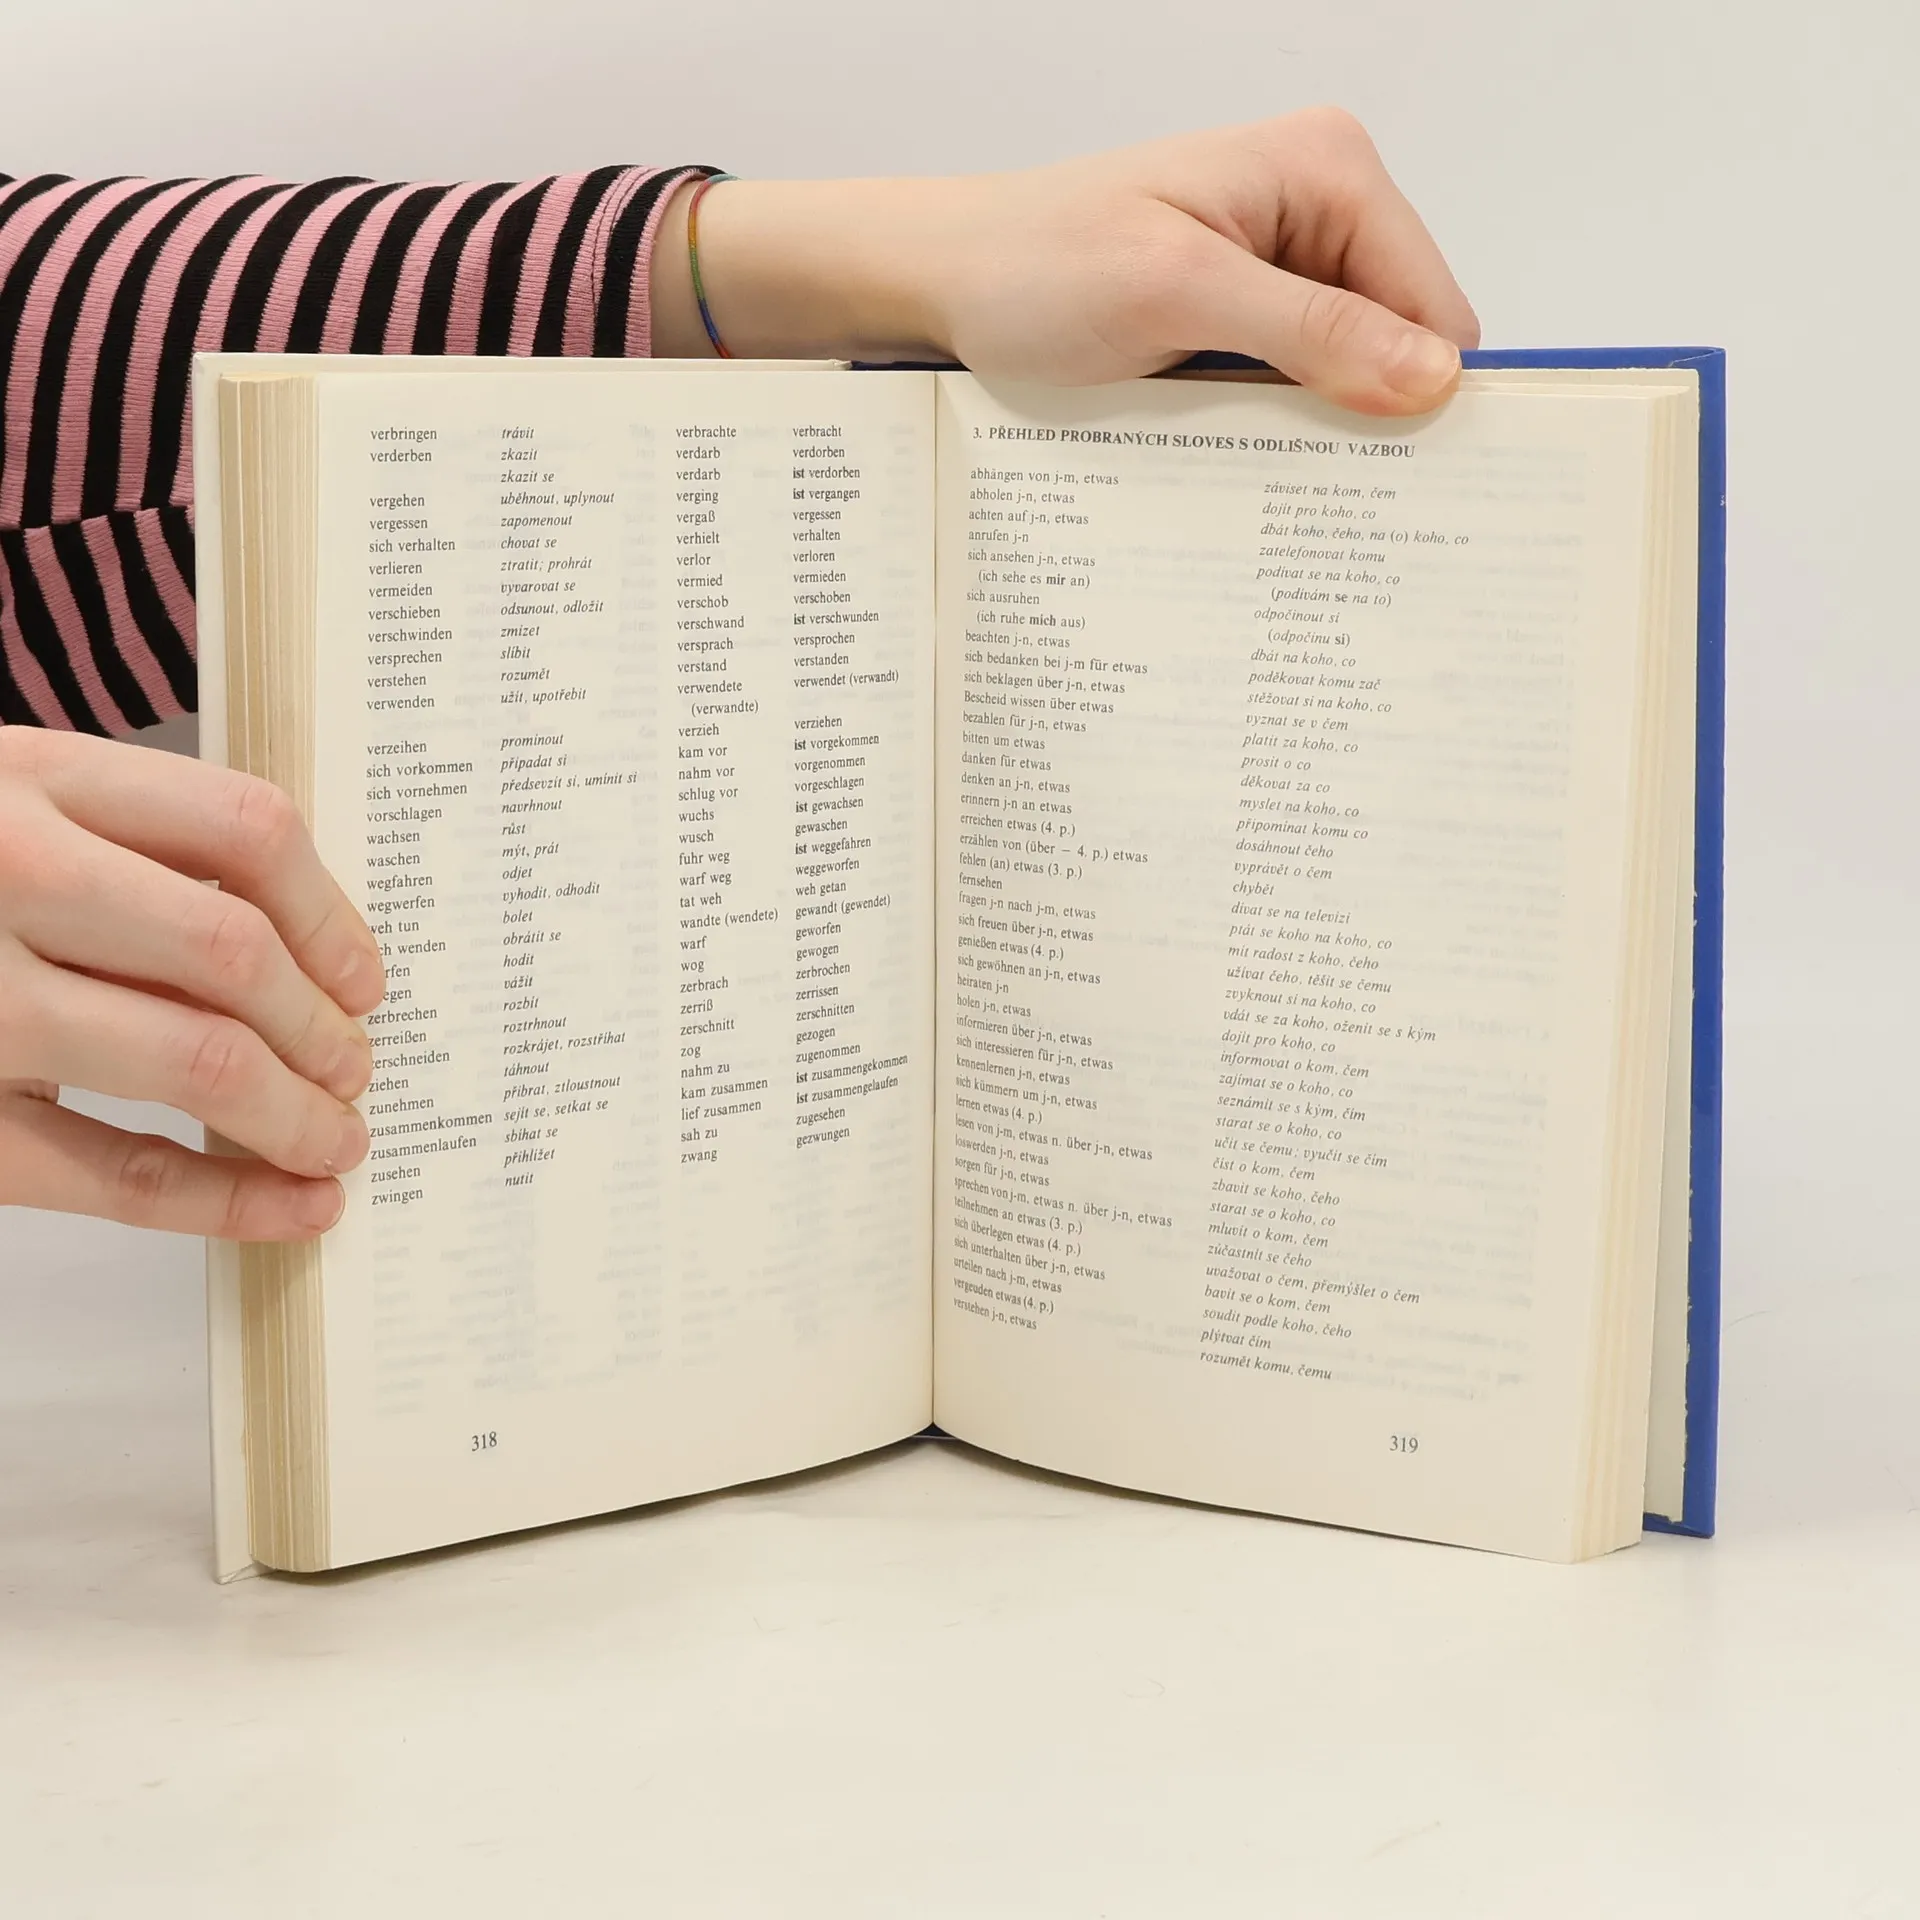 verbringen trávit verbrachte verbracht
verderben zkazit verdarb verdorben
zkazit se verdarb ist verdorben
vergehen uběhnout, uplynout verging ist vergangen
vergessen zapomenout vergaß vergessen
sich verhalten chovat se verhielt verhalten
verlieren ztratit; prohrát verlor verloren
vermeiden vyvarovat se vermied vermieden
verschieben odsunout, odložit verschob verschoben
verschwinden zmizet verschwand ist verschwunden
versprechen slíbit versprach versprochen
verstehen rozumět verstand verstanden
verwenden užít, upotřebit verwendete verwendet (verwandt)
(verwandte)
verzeihen prominout verzieh verziehen
sich vorkommen připadat si kam vor ist vorgekommen
sich vornehmen předsevzít si, umínit si nahm vor vorgenommen
vorschlagen navrhnout schlug vor vorgeschlagen
wachsen růst wuchs ist gewachsen
waschen mýt, prát wusch gewaschen
wegfahren odjet fuhr weg ist weggefahren
wegwerfen vyhodit, odhodit warf weg weggeworfen
weh tun bolet tat weh weh getan
wenden obrátit se wandte (wendete) gewandt (gewendet)
hodit warf geworfen
vážit wog gewogen
zerbrechen rozbít zerbrach zerbrochen
zerreißen roztrhnout zerriß zerrissen
zerschneiden rozkrájet, rozstříhat zerschnitt zerschnitten
ziehen táhnout zog gezogen
zunehmen přibrat, ztloustnout nahm zu zugenommen
zusammenkommen sejít se, setkat se kam zusammen ist zusammengekommen
zusammenlaufen sbíhat se lief zusammen ist zusammengelaufen
zusehen přihlížet sah zu zugesehen
zwingen nutit zwang gezwungen
318
3. PŘEHLED PROBRANÝCH SLOVES S ODLIŠNOU VAZBOU
abhängen von j-m, etwas záviset na kom, čem
abholen j-n, etwas dojít pro koho, co
achten auf j-n, etwas dbát koho, čeho, na (o) koho, co
anrufen j-n zatelefonovat komu
sich ansehen j-n, etwas podívat se na koho, co
(ich sehe es mir an) (podívám se na to)
sich ausruhen odpočinout si
(ich ruhe mich aus) (odpočinu si)
beachten j-n, etwas dbát na koho, co
sich bedanken bei j-m für etwas poděkovat komu zač
sich beklagen über j-n, etwas stěžovat si na koho, co
Bescheid wissen über etwas vyznat se v čem
bezahlen für j-n, etwas platit za koho, co
bitten um etwas prosit o co
danken für etwas děkovat za co
denken an j-n, etwas myslet na koho, co
erinnern j-n an etwas připomínat komu co
erreichen etwas (4. p.) dosáhnout čeho
erzählen von (über — 4. p.) etwas vyprávět o čem
fehlen (an) etwas (3. p.) chybět
fernsehen dívat se na televizi
fragen j-n nach j-m, etwas ptát se koho na koho, co
sich freuen über j-n, etwas mít radost z koho, čeho
genießen etwas (4. p.) užívat čeho, těšit se čemu
sich gewöhnen an j-n, etwas zvyknout si na koho, co
heiraten j-n vdát se za koho, oženit se s kým
holen j-n, etwas dojít pro koho, co
informieren über j-n, etwas informovat o kom, čem
sich interessieren für j-n, etwas zajímat se o koho, co
kennenlernen j-n, etwas seznámit se s kým, čím
sich kümmern um j-n, etwas starat se o koho, co
lernen etwas (4. p.) učit se čemu; vyučit se čím
lesen von j-m, etwas n. über j-n, etwas číst o kom, čem
loswerden j-n, etwas zbavit se koho, čeho
sorgen für j-n, etwas starat se o koho, co
sprechen von j-m, etwas n. über j-n, etwas mluvit o kom, čem
teilnehmen an etwas (3. p.) zúčastnit se čeho
sich überlegen etwas (4. p.) uvažovat o čem, přemýšlet o čem
sich unterhalten über j-n, etwas bavit se o kom, čem
urteilen nach j-m, etwas soudit podle koho, čeho
vergeuden etwas (4. p.) plýtvat čím
verstehen j-n, etwas rozumět komu, čemu
319